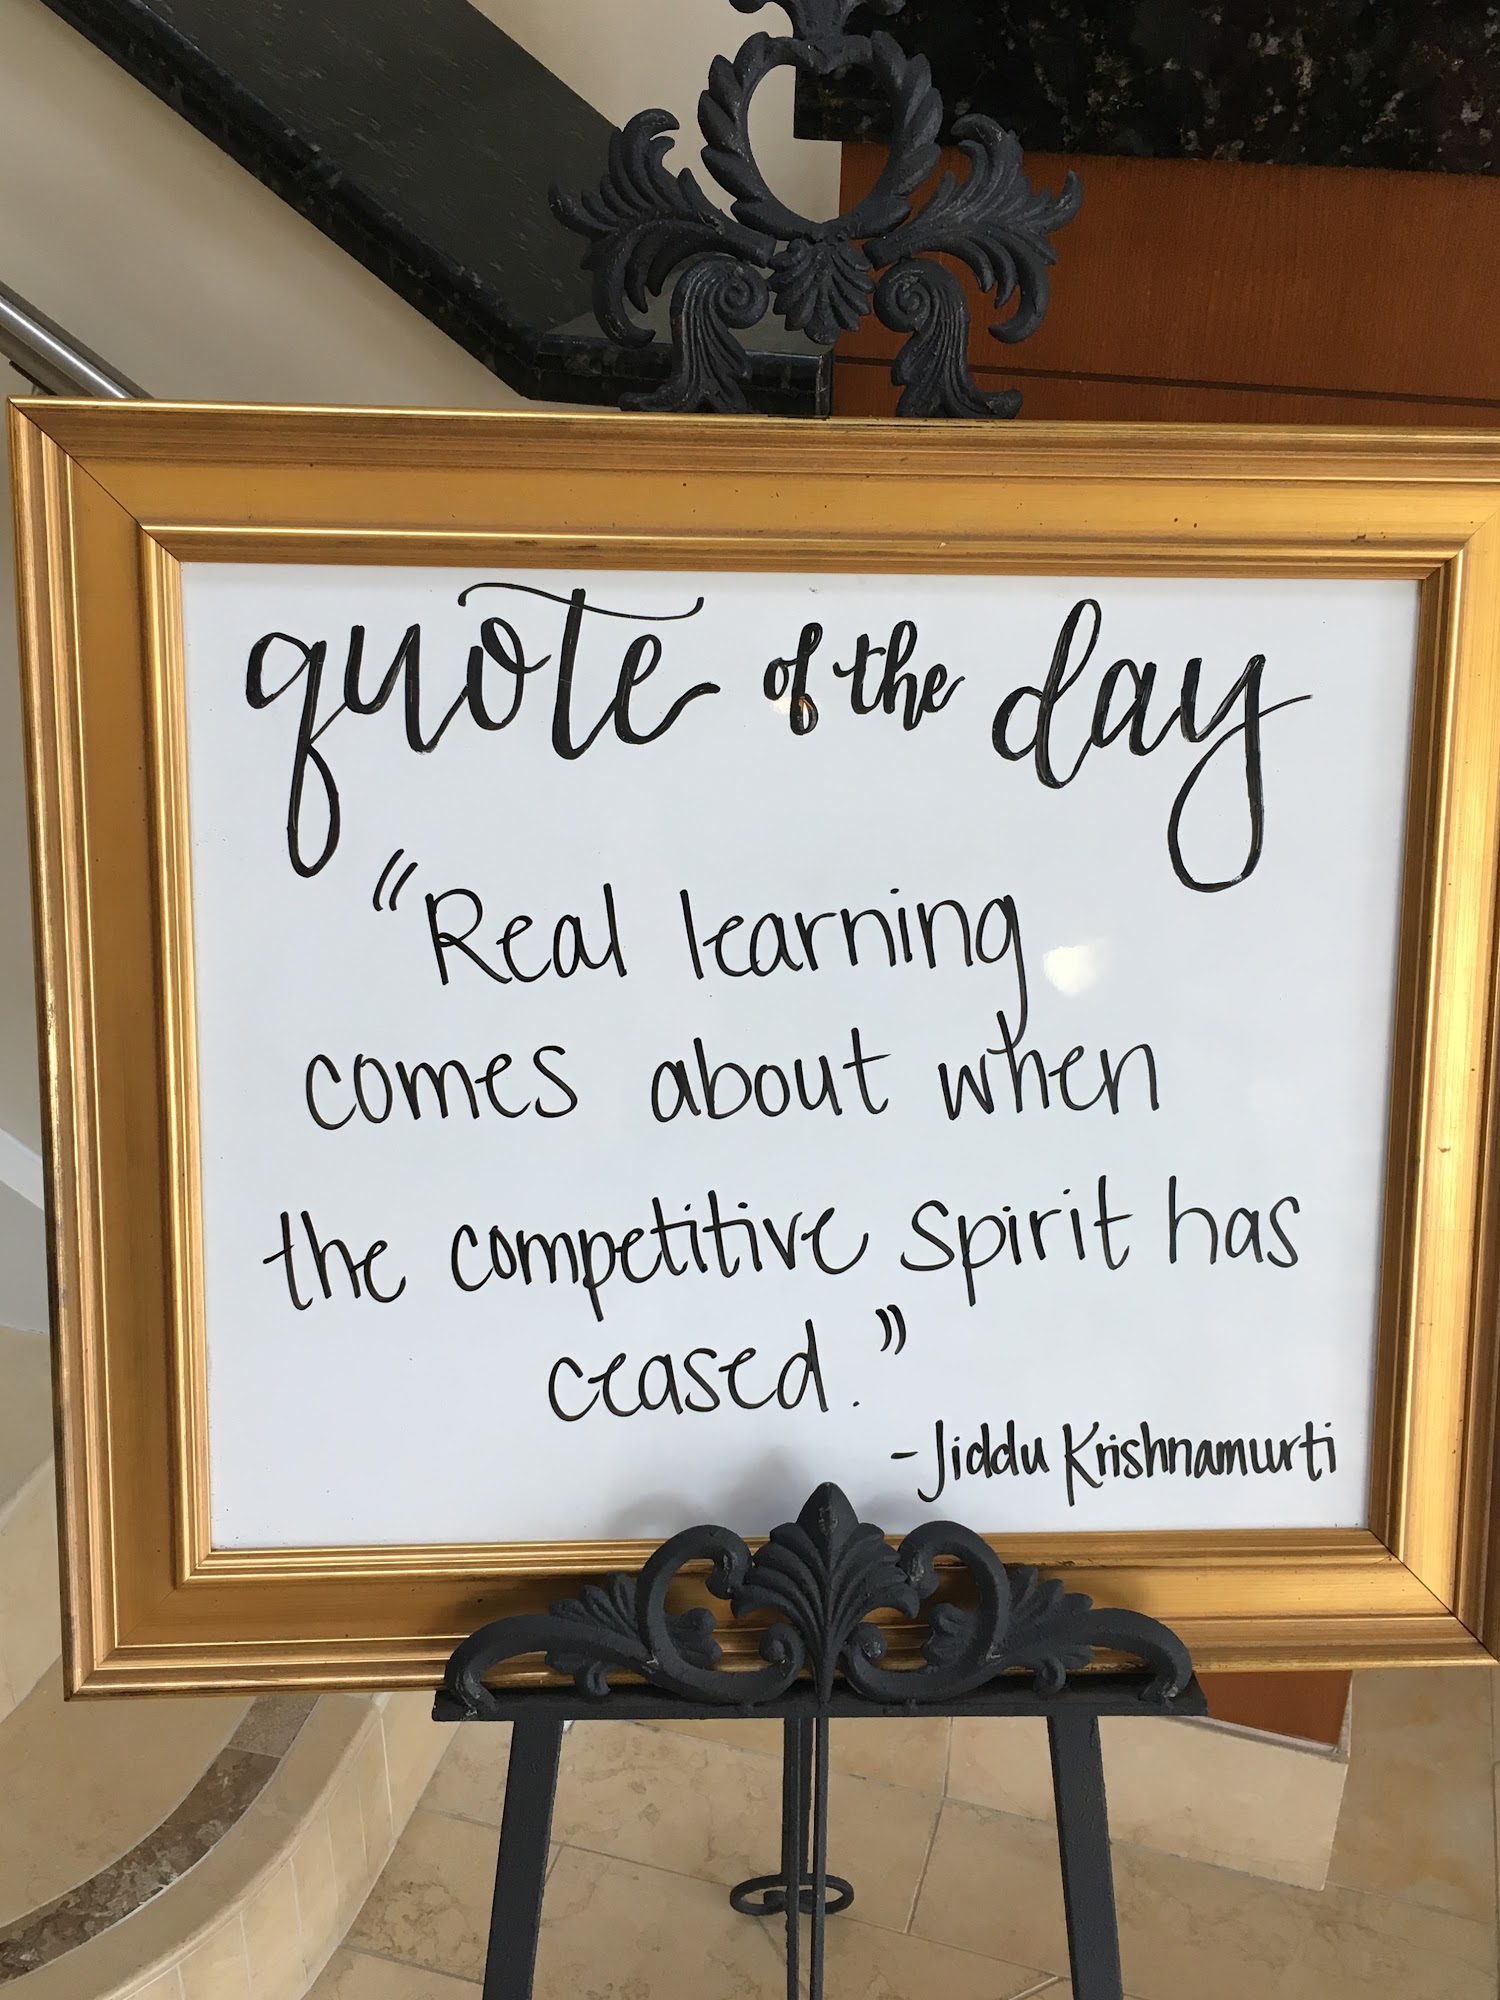 quote of the day
"Real learning
comes about when
the competitive spirit has
ceased."
-Jiddu Krishnamurti